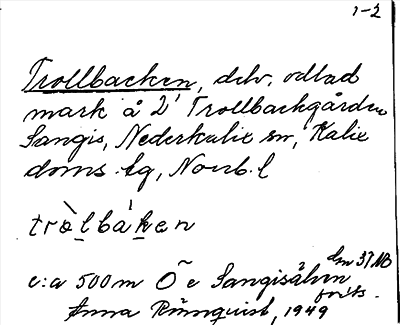 1-2
Trollbacken, delv. odlad
mark å 2' Trollbackgården
Sangis, Nederkalix sn, Kalix
doms. lg, Norrb. l
tròlbáken
c:a 500 m Ö e Sangisälven
Anna Rönnquist, 1949